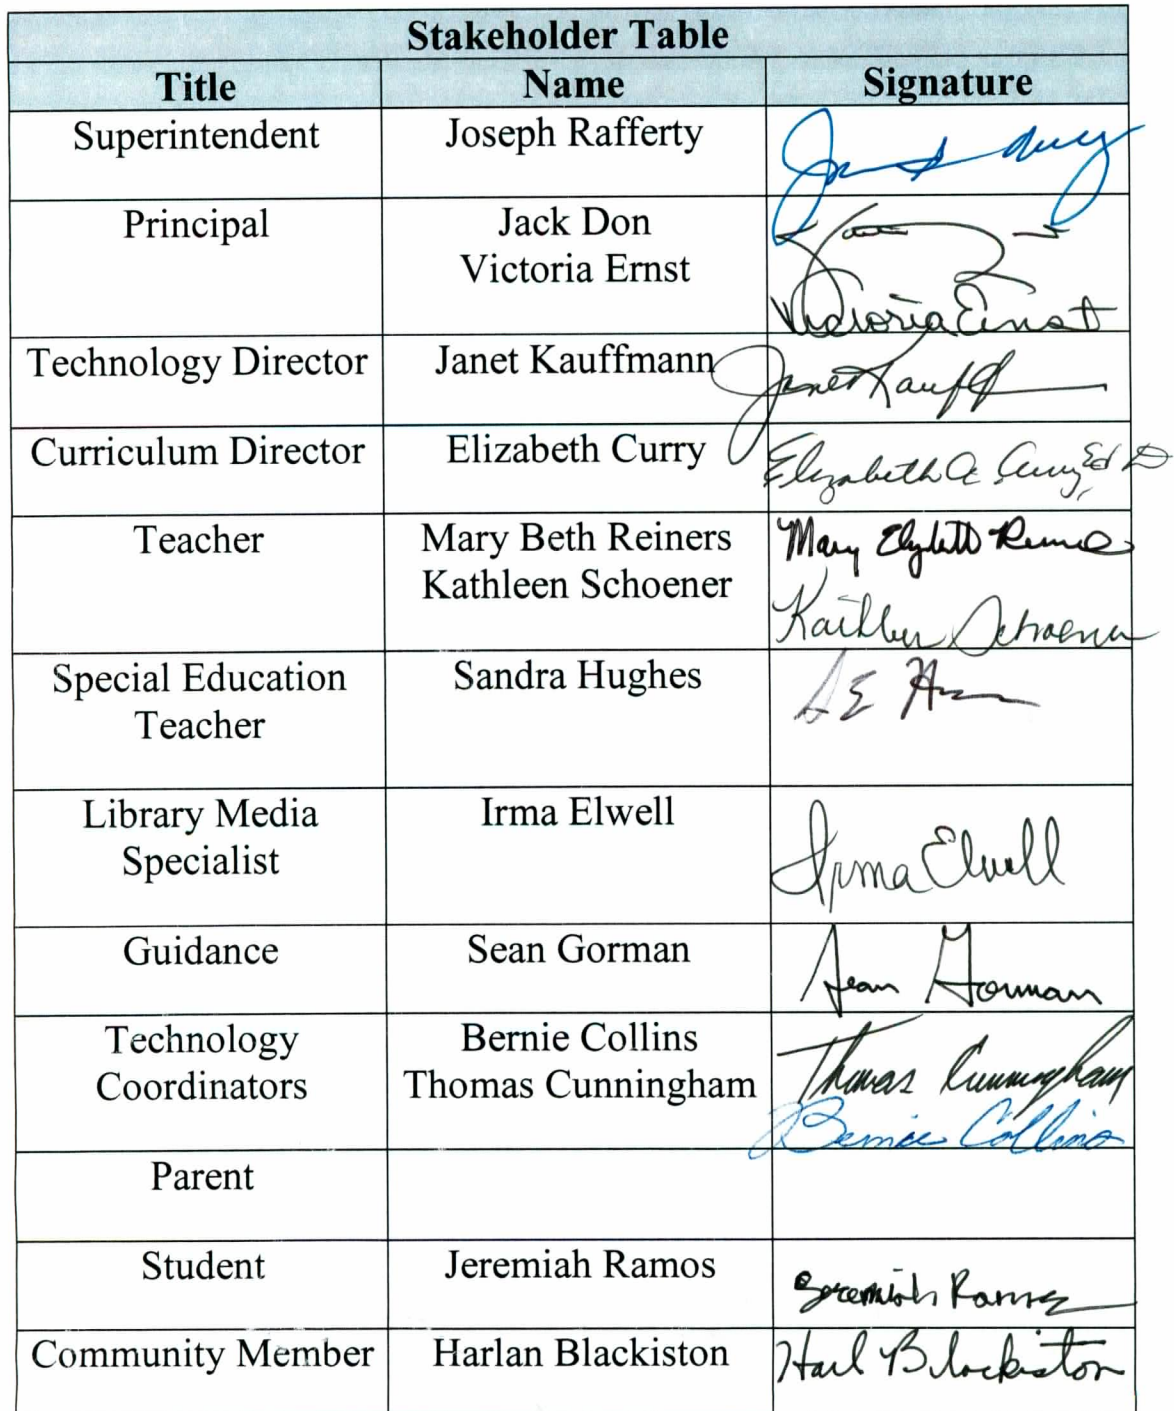 Stakeholder Table
Title Name Signature
Superintendent Joseph Rafferty
Principal Jack Don
Victoria Ernst Victoria Ernst
Technology Director Janet Kauffmann Janet Kauff
Curriculum Director Elizabeth Curry Elizabeth A Curry Ed D
Teacher Mary Beth Reiners Mary Elizabeth Reiners
Kathleen Schoener Kathleen Schoener
Special Education Sandra Hughes S E H
Teacher
Library Media Irma Elwell Irma Elwell
Specialist
Guidance Sean Gorman Sean Gorman
Technology Bernie Collins Thomas Cunningham
Coordinators Thomas Cunningham Bernie Collins
Parent
Student Jeremiah Ramos Jeremiah Ramos
Community Member Harlan Blackiston Harl Blackiston